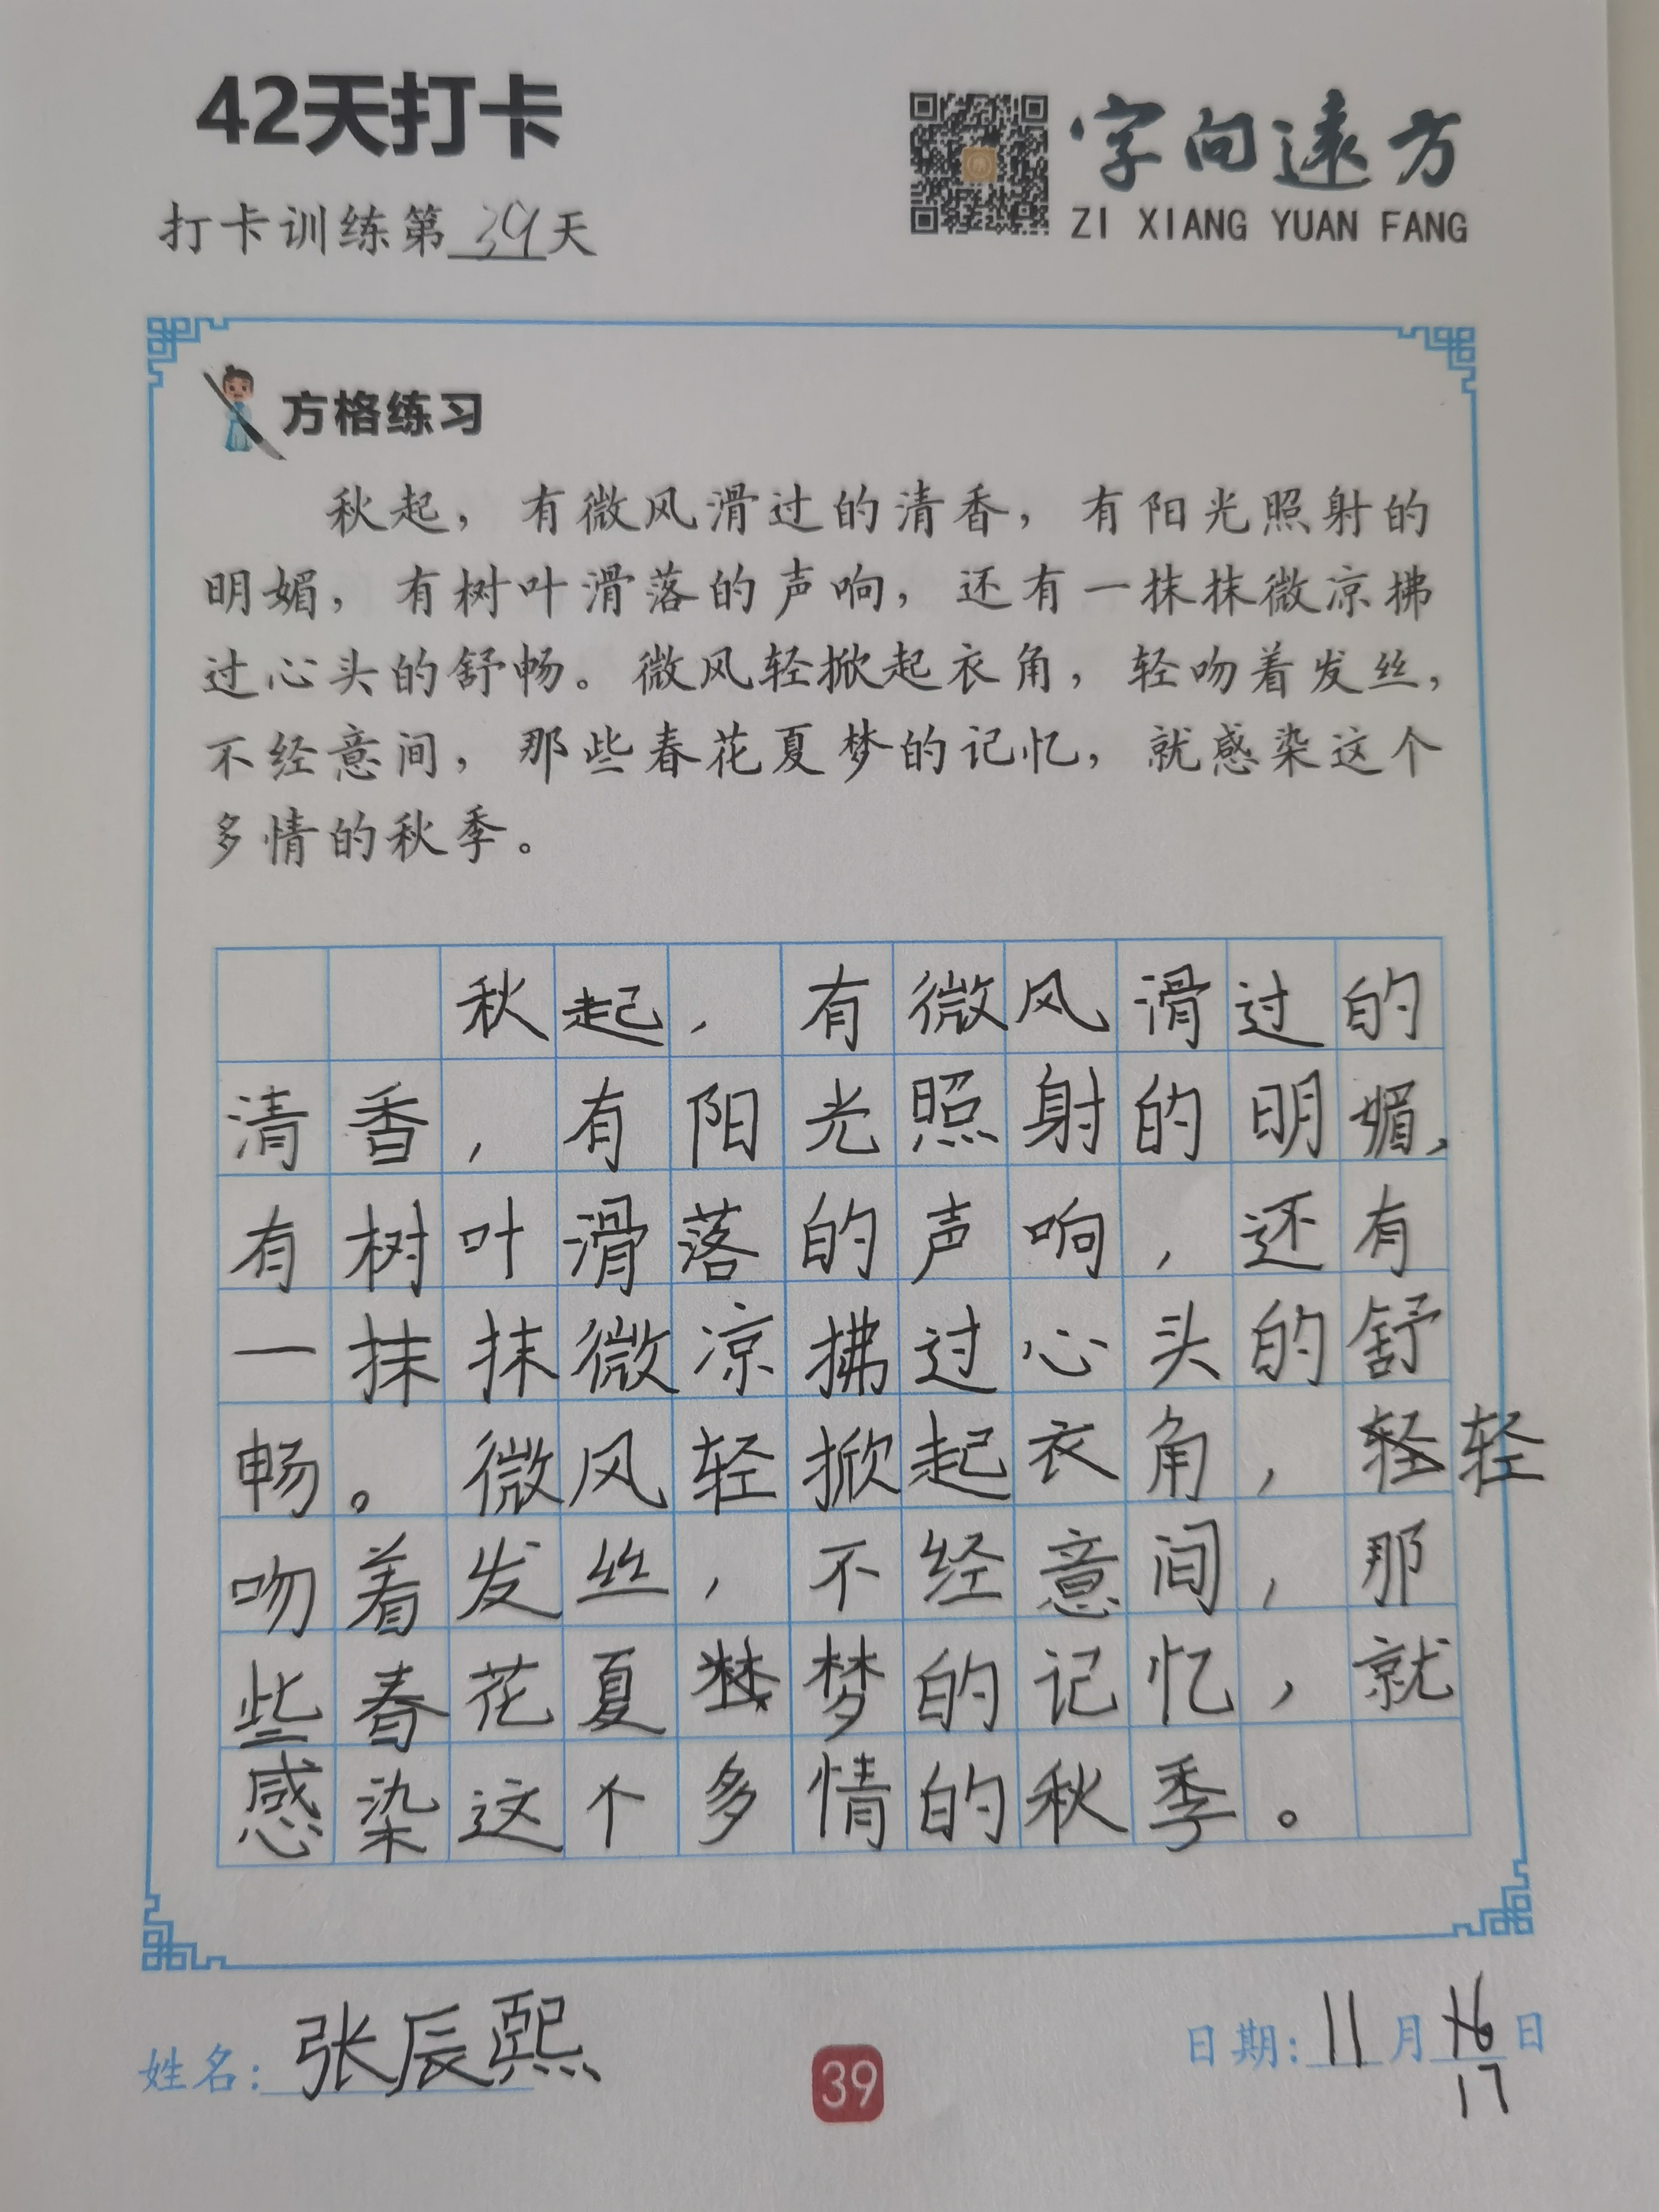 42天打卡
字向远方
ZI XIANG YUAN FANG
打卡训练第39天
方格练习
秋起，有微风滑过的清香，有阳光照射的
明媚，有树叶滑落的声响，还有一抹抹微凉拂
过心头的舒畅。微风轻掀起衣角，轻吻着发丝，
不经意间，那些春花夏梦的记忆，就感染这个
多情的秋季。
秋起，有微风滑过的
清香，有阳光照射的明媚，
有树叶滑落的声响，还有
一抹抹微凉拂过心头的舒
畅。微风轻掀起衣角，轻
吻着发丝，不经意间，那
些春花夏梦的记忆，就
感染这个多情的秋季。
姓名：张辰熙
39
日期：11月17日